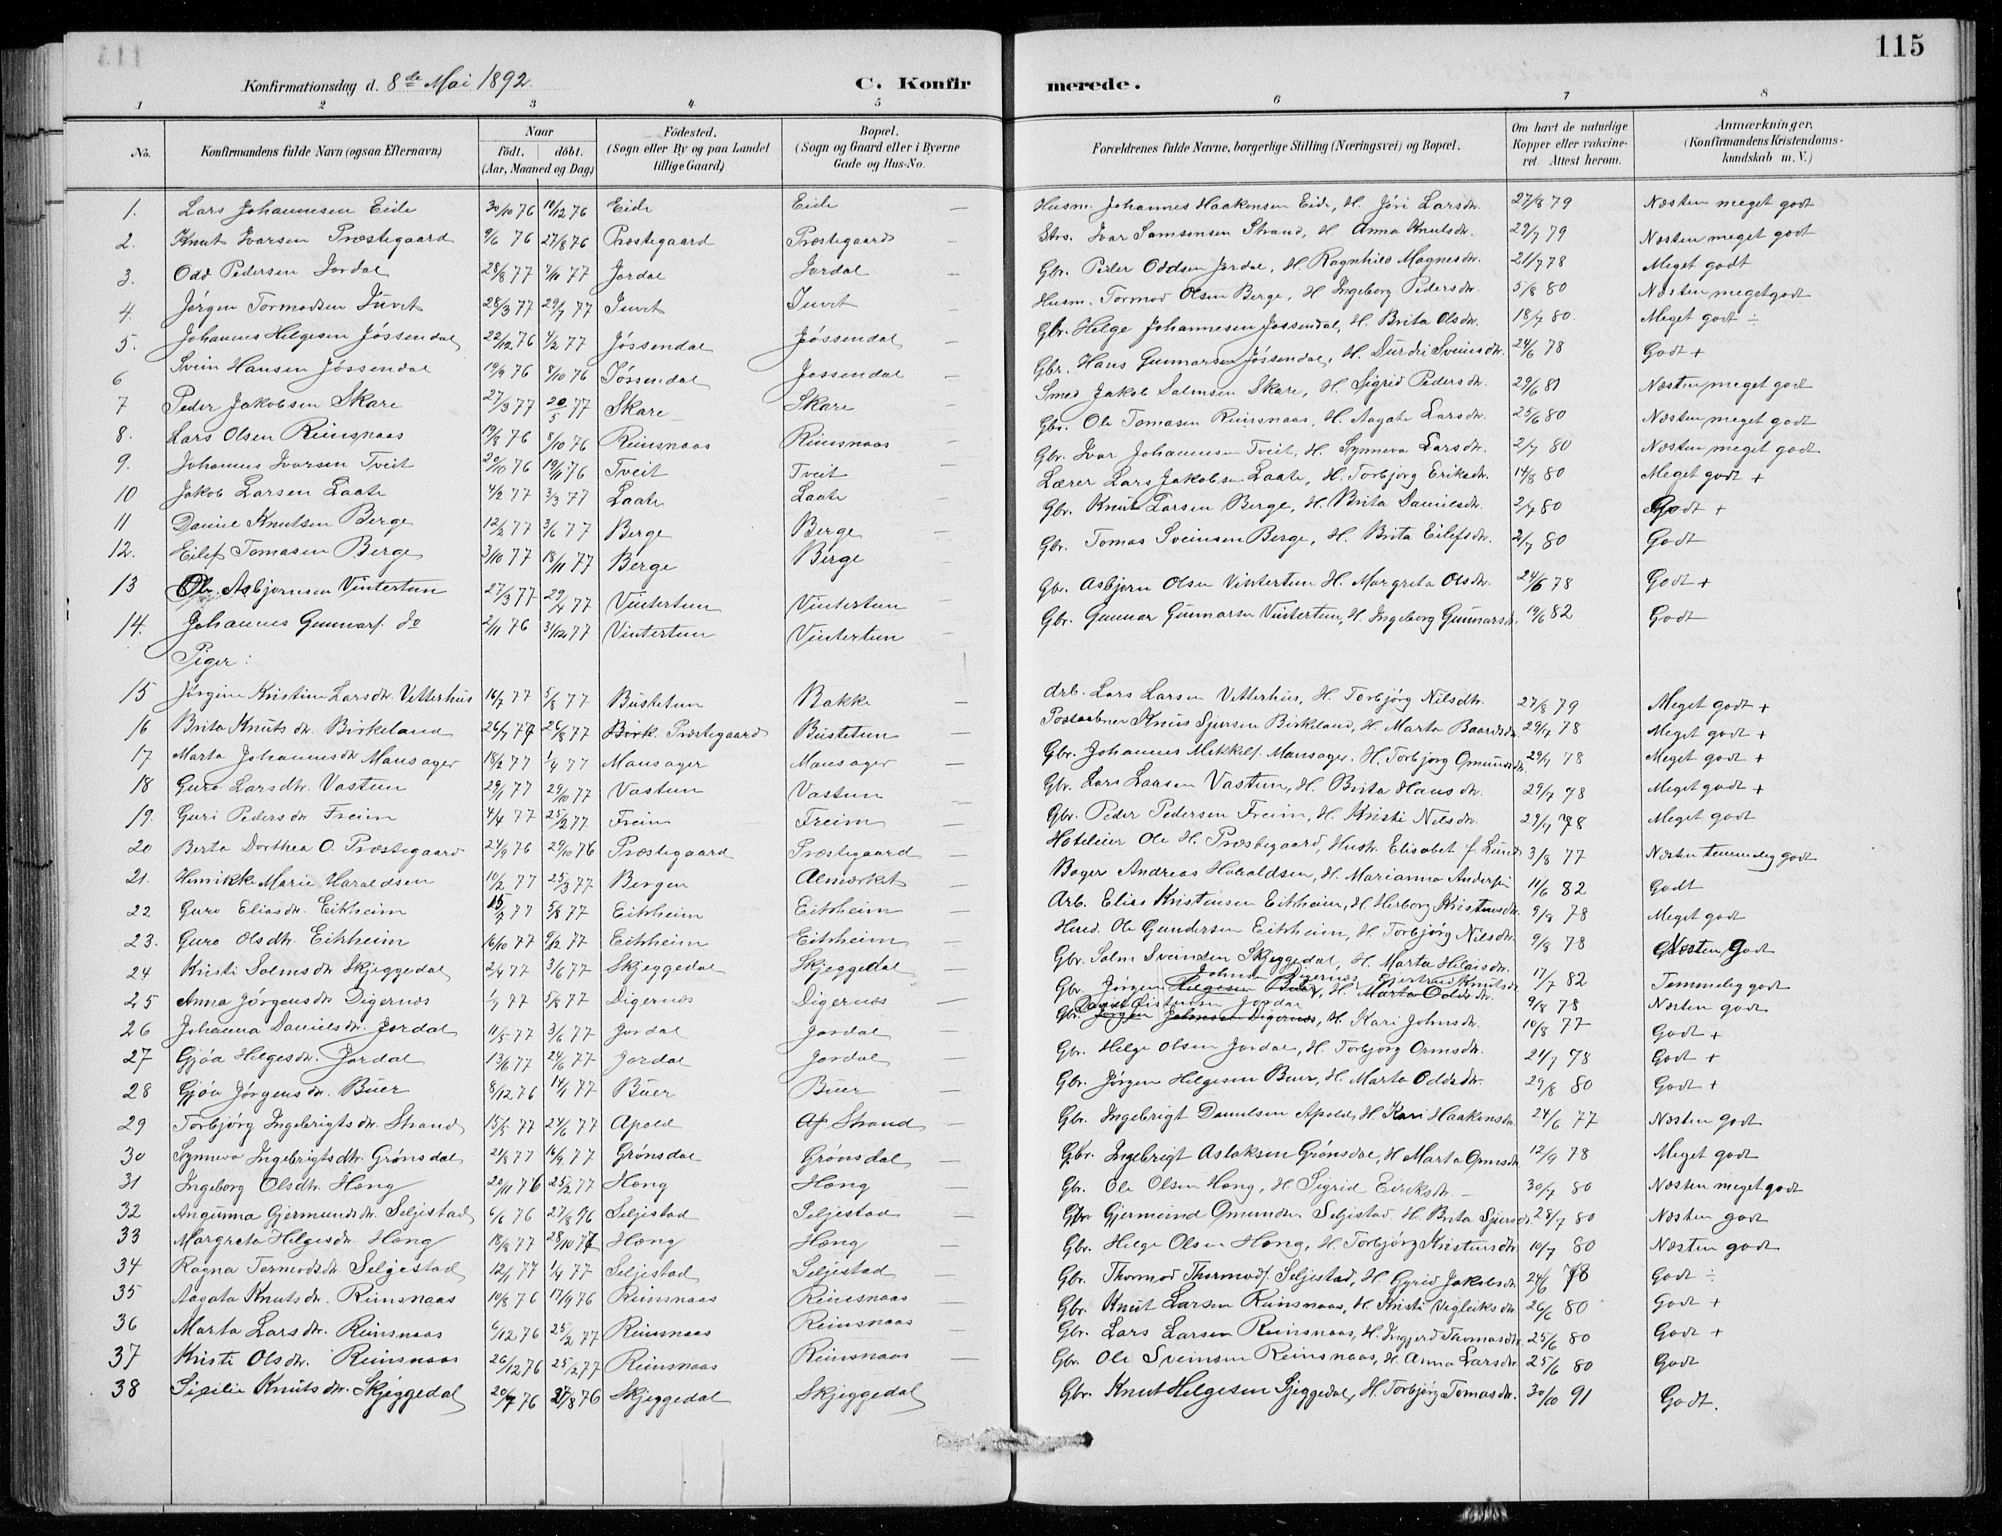 115
Konfirmationsdag d. 8de Mai 1892.
C. Konfir merede.
1 2 3 4 5 6 7 8
No. Konfirmandens fulde Navn (ogsaa Efternavn) Naar födt. döbt. (Aar, Maaned og Dag) Födested. (Sogn eller By og paa Landet tillige Gaard) Bopæl. (Sogn og Gaard eller i Byerne Gade og Hus-No. Forældrenes fulde Navne, borgerlige Stilling (Næringsvei) og Bopæl. Om havt de naturlige Kopper eller vakcineret. Attest herom. Anmærkninger. (Konfirmandens Kristendomskundskab m. V.)
1. Lars Johannesen Eide 30/10 76 10/12 76 Eide Eide — Husm. Johannes Haakensen Eide, H. Jöri Larsdr. 27/8 79 Næsten meget godt
2. Knut Ivarsen Præstegaard 9/6 76 27/8 76 Præstegaard Præstegaard — Strs. Ivar Samsonsen Strand, H. Anna Knutsdr. 29/7 79 Næsten meget godt
3. Odd Pedersen Jordal 28/8 77 7/10 77 Jordal Jordal — Gbr. Peder Oddsen Jordal, H. Ragnhild Magnesdr. 21/7 78 Meget godt
4. Jörgen Tormodsen Juvet 28/3 77 29/7 77 Juvet Juvet — Husm. Tormod Olsen Berge, H Ingeborg Pedersdr. 5/8 80 Næsten meget godt
5. Johannes Helgesen Jössendal 22/12 76 4/2 77 Jössendal Jössendal — Gbr. Helge Johannesen Jössendal, H. Brita Olsdr. 18/7 80. Meget godt ÷
6 Svein Hansen Jössendal 19/9 76 8/10 76 Jössendal Jössendal — Gbr. Hans Gunnarsen Jössendal, H. Durdei Sveinsdr. 24/6 78 Godt +
7 Peder Jakobsen Skare 27/3 77 20/5 77 Skare Skare — Smed Jakob Salmsen Skare, H. Sigrid Pedersdr. 29/6 81 Næsten meget godt
8. Lars Olsen Reinsnaas 19/8 76 8/10 76 Reinsnaas Reinsnaas — Gbr. Ole Tomasen Reinsnaas, H. Aagate Larsdr. 25/6 80 Næsten meget godt
9. Johannes Ivarsen Tveit 20/10 76 19/11 76 Tveit Tveit — Gbr. Ivar Johannesen Tveit, H. Synneva Larsdr. 2/7 80 Næsten meget godt
10 Jakob Larsen Laate 4/2 77 3/3 77 Laate Laate — Lærer Lars Jakobsen Laate, H. Torbjörg Eriksdr. 14/8 80 Meget godt +
11 Daniel Knutsen Berge 12/2 77 3/6 77 Berge Berge — Gbr. Knut Larsen Berge, H. Brita Danielsdr. 2/7 80 Godt +
12. Eilef Tomasen Berge 3/10 77 18/11 77 Berge Berge — Gbr. Tomas Sveinsen Berge, H. Brita Eilefsdr. 2/7 80 Godt
13 Ole Asbjörnsen Vintertun 27/3 77 29/4 77 Vintertun Vintertun — Gbr. Asbjörn Olsen Vintertun H. Margreta Olsdr. 24/6 78 Godt +
14. Johannes Gunnars. do 2/11 76 31/12 77 Vintertun Vintertun — Gbr. Gunnar Gunnarsen Vintertun, H. Ingeborg Gunnarsdr. 19/6 82 Godt
Piger:
15 Jörgine Kristine Larsdr. Vetterhus 16/7 77 5/8 77 Bustetun Bakke — Arb. Lars Larsen Vetterhus, H. Torbjörg Nilsdtr. 27/8 79 Meget godt +
16 Brita Knutsdr. Birkeland 26/7 77 26/8 77 Birk. Præstegaard Bustetun — Postaabner Knut Sjursen Birkeland, H. Marta Baardsdr. 29/7 78 Meget godt +
17 Marta Johannesdr Mansager 18/2 77 1/4 77 Mansager Mansager — Gbr. Johannes Mikkels. Mansager. H. Torbjörg Omundsdr. 29/7 78 Meget godt +
18 Guro Larsdtr. Vastun 29/1 77 29/10 77 Vastun Vastun — Gbr. Lars Larsen Vastun, H. Brita Hansdr. 29/7 78 Meget godt +
19. Guri Pedersdr Freim 4/4 77 25/2 77 Freim Freim — Gbr. Peder Pedersen Freim, H. Kristi Nilsdr. 29/7 78 Meget godt
20 Berta Dorthea O. Præstegaard 24/9 76 29/10 76 Præstegaard Præstegaard — Hoteleier Ole H. Præstegaard, Hustr. Elisabet f. Lund 3/8 77 Næsten temmelig godt
21. Henrikke Marie Haraldsen 10/2 77 25/3 77 Bergen Almerket — Bager Andreas Haraldsen, H. Marianna Anders. 11/6 82 Godt
22 Guro Eliasdr. Eitrheim 15/7 77 5/8 77 Eitrheim Eitrheim — Arb. Elias Kristensen Eitrheim, H. Herborg Kristensdr. 9/8 78 Meget godt
23. Guro Olsdtr. Eitrheim 16/10 77 9/12 77 Eitrheim Eitrheim — Ole Gundersen Eitrheim, H. Torbjörg Nilsdr. 9/8 78 Næsten godt
24 Kristi Salmsdr Skjeggedal 2/4 77 3/6 77 Skjeggedal Skjeggedal — Gbr. Salm Sveinsen Skjeggedal, H. Marta Helgisdr. 17/7 82 Temmelig godt
25 Anna Jörgensdr. Digernes 1/7 77 5/8 77 Digernæs Digernæs — Gbr. Jörgen Helgesen Buer, H. Marta Oddsdr. Johnsen Digernæs, Gjertrud Knutsdr. 9/8 78 Næsten godt
26 Johanna Danielsdr. Jordal 11/5 77 3/6 77 Jordal Jordal — Gbr. Jörgen Johnsen Digernæs, H. Kari Johnsdr. 10/8 77 Godt +
27 Gjöa Helgesdr. Jordal 13/6 77 24/6 77 Jordal Jordal — Gbr. Helge Olsen Jordal, H. Torbjörg Ormsdr. 21/7 78 Godt +
28 Gjöa Jörgensdr. Buer 8/12 76 14/1 77 Buer Buer — Gbr. Jörgen Helgesen Buer, H. Marta Oddsdr. 29/8 80 Godt +
29 Torbjörg Ingebrigtsdr. Strand 15/5 77 24/6 77 Apold Strand — Gbr. Ingebrigt Danielsen Apold, H Kari Haakensdr. 24/6 77 Næsten godt
30 Synneva Ingebrigtsdtr. Grönsdal 21/8 77 16/9 77 Grönsdal Grönsdal — Gbr. Ingebrigt Aslaksen Grönsdal, H Marta Ormsdr 12/9 78 Meget godt
31 Ingeborg Olsdtr. Hæng 20/11 76 25/2 77 Hæng Hæng — Gbr. Ole Olsen Hæng, H. Sigrid Eiriksdr. — 30/7 80 Næsten meget godt
32 Angunna Gjermundsdr. Seljestad 6/6 76 27/8 76 Seljestad Seljestad — Gbr. Gjermund Omundsen Seljestad, H. Brita Sjursdr 28/7 80 Næsten godt
33 Margreta Helgesdr Hæng 18/8 77 28/10 77 Hæng Hæng — Gbr. Helge Olsen Hæng, H. Torbjörg Kristensdr. 10/7 80 Næsten godt
34 Ragna Tormodsdr. Seljestad 12/1 77 1/4 77 Seljestad Seljestad — Gbr. Thormod Thormods. Seljestad, H Gyrid Jakobsdr 24/6 78 Godt ÷
35 Aagata Knutsdr. Reinsnaas 10/8 76 17/9 76 Reinsnaas Reinsnaas — Gbr. Knut Larsen Reinsnaas, H. Kristi Vigleiksdr 26/6 80 Godt +
36 Marta Larsdr. Reinsnaas 6/12 76 25/2 77 Reinsnaas Reinsnaas — Gbr. Lars Larsen Reinsnaas, H. Ingjerd Thomasdr. 25/6 80 Godt +
37 Kristi Olsdtr. Reinsnaas 26/12 76 25/2 77 Reinsnaas Reinsnaas — Gbr. Ole Sveinsen Reinsnaas, H. Anna Larsdr 25/6 80 Godt
38 Sigilie Knutsdr. Skjeggedal 20/7 76 27/8 76 Skjeggedal Skjeggedal — Gbr. Knut Helgesen Sjeggedal, H. Torbjörg Tomasdr. 30/10 91 Godt.